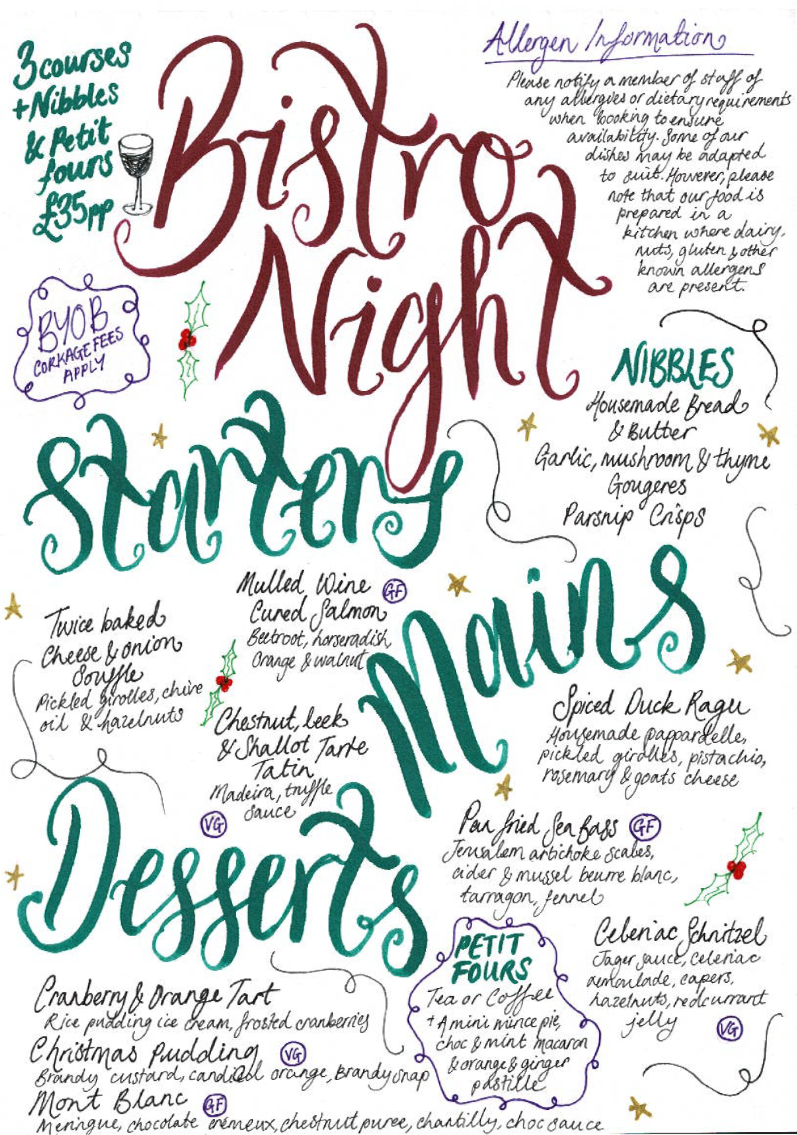 3 courses
+ Nibbles
& Petit
fours
£35pp
Bistro
Night
Allergen Information
Please notify a member of staff of
any allergies or dietary requirements
when booking to ensure
availability. Some of our
dishes may be adapted
to suit. However, please
note that our food is
prepared in a
kitchen where dairy,
nuts, gluten & other
known allergens
are present.
BYOB
CORKAGE FEES
APPLY
NIBBLES
Housemade Bread
& Butter
Garlic, mushroom & thyme
Gougeres
Parsnip Crisps
Starters
Twice baked
Cheese & onion
Souffle
Pickled girolles, chive
oil & hazelnuts
Mulled Wine GF
Cured Salmon
Beetroot, horseradish
Orange & walnut
Chestnut, leek
& Shallot Tarte
Tatin
Madeira, truffle
sauce
VG
Mains
Spiced Duck Ragu
Housemade pappardelle,
pickled girolles, pistachio,
rosemary & goats cheese
Pan fried Sea Bass GF
Jerusalem artichoke scales,
cider & mussel beurre blanc,
tarragon, fennel
Celeriac Schnitzel
Jager sauce, celeriac
remoulade, capers,
hazelnuts, redcurrant
jelly VG
Desserts
Cranberry & Orange Tart
Rice pudding ice cream, frosted cranberries
Christmas Pudding VG
Brandy custard, candied orange, Brandy snap
Mont Blanc GF
Meringue, chocolate cremeux, chestnut puree, chantilly, choc sauce
PETIT
FOURS
Tea or Coffee
+ A mini mince pie,
choc & mint macaron
& orange & ginger
pastille